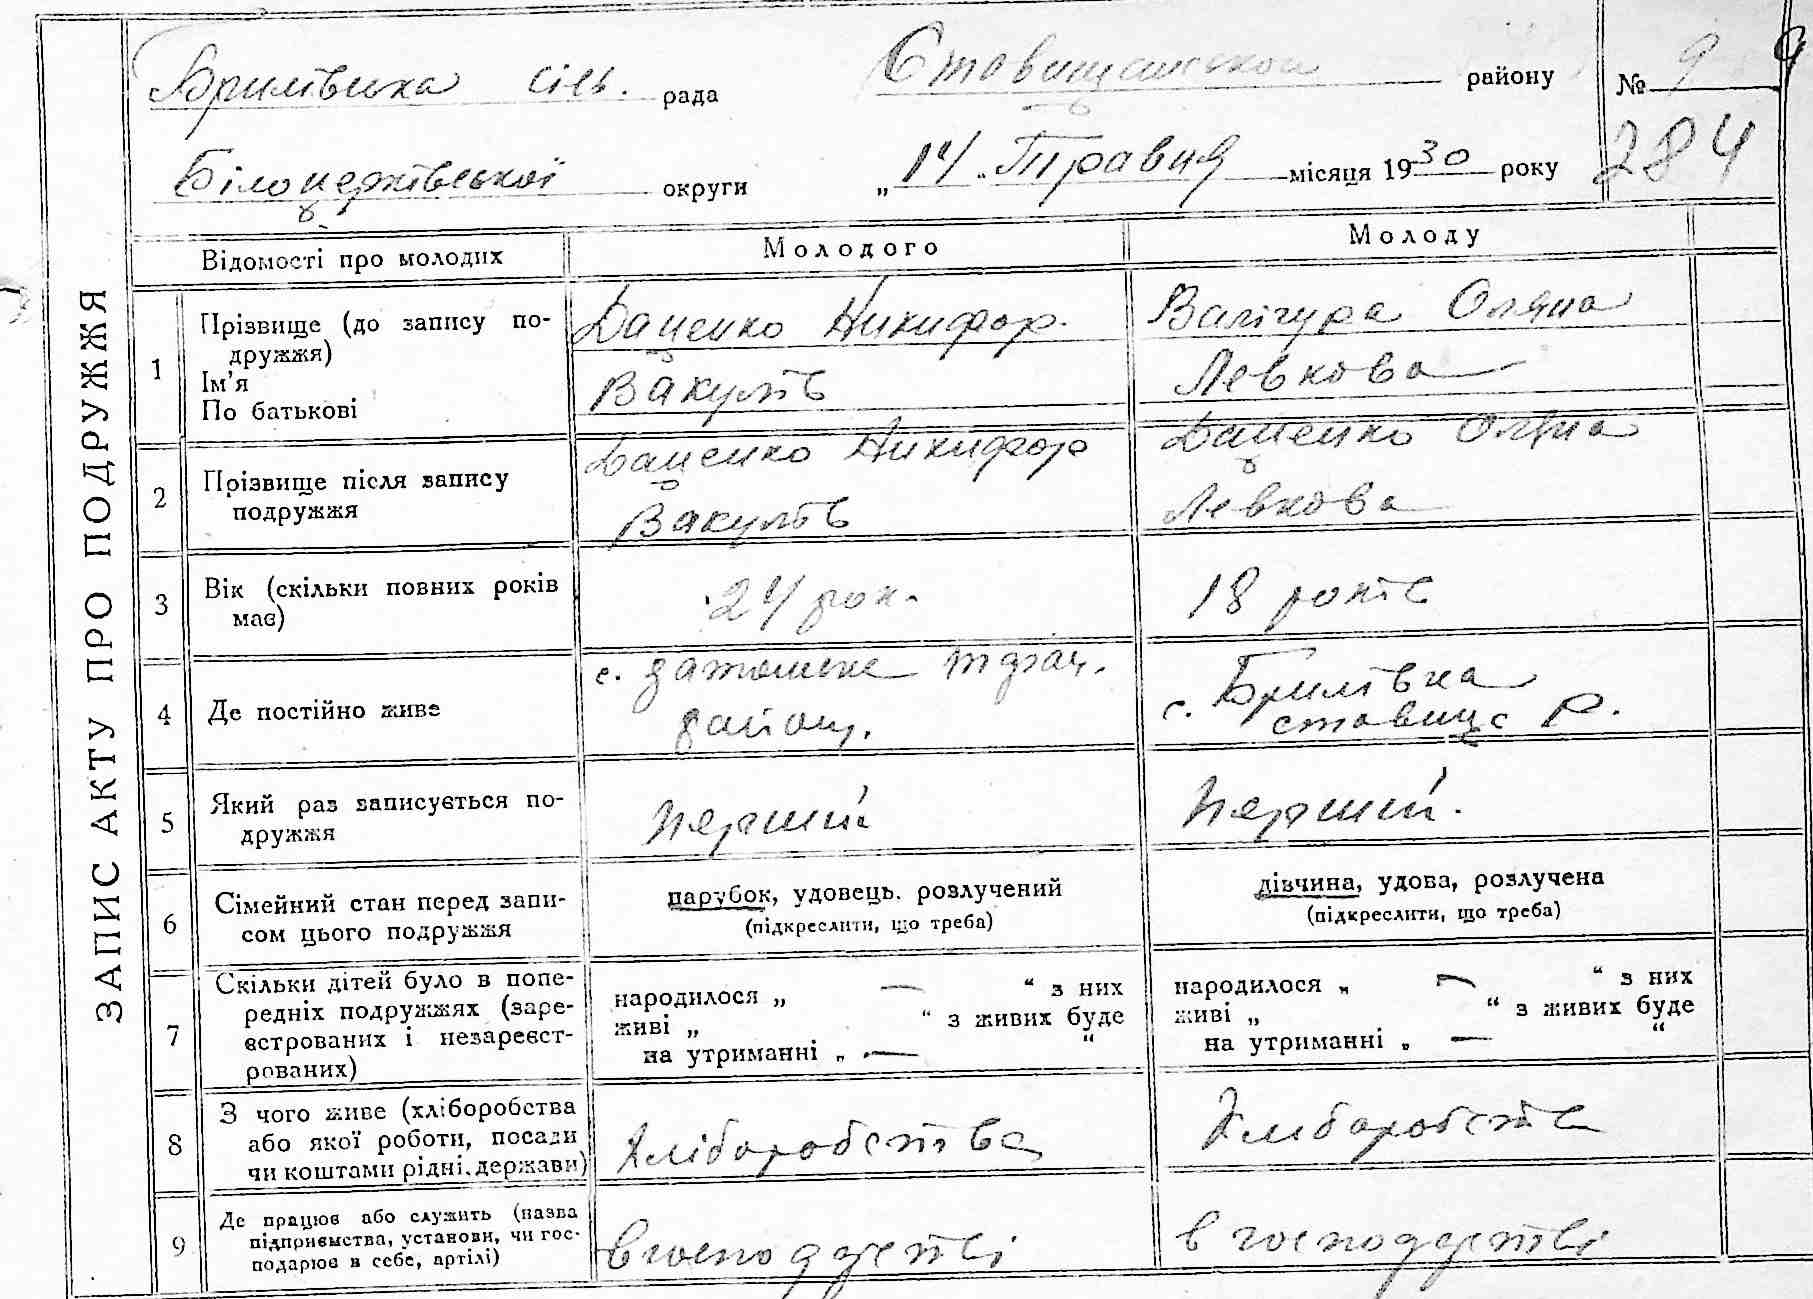 Брилівська сіль. рада Ставищанської району № 9 9
Білоцерківської округи „14" Травня місяця 1930 року 284
ЗАПИС АКТУ ПРО ПОДРУЖЖЯ
Відомості про молодих Молодого Молоду
1 Прізвище (до запису по-
дружжя)
Ім’я
По батькові
Даценко Никифор.
Вакулів
Валігура Оляна
Левкова
2 Прізвище після запису
подружжя
Даценко Никифор
Вакулів
Даценко Оляна
Левкова
3 Вік (скільки повних років
має)
24 рок.
18 років
4 Де постійно живе
с.
район.
с. Брилівка
ставищ р.
5 Який раз записується по-
дружжя
перший
перший.
6 Сімейний стан перед запи-
сом цього подружжя
парубок, удовець. розлучений
(підкреслити, що треба)
дівчина, удова, розлучена
(підкреслити, що треба)
7 Скільки дітей було в попе-
редніх подружжях (заре-
єстрованих і незареєст-
рованих)
народилося „ — “ з них
живі „ “ з живих буде
на утриманні „ — “
народилося „ — “ з них
живі „ “ з живих буде
на утриманні „ — “
8 З чого живе (хліборобства
або якої роботи, посади
чи коштами рідні, держави)
Хліборобства
Хліборобства
9 Де працює або служить (назва
підприємства, установи, чи гос-
подарює в себе, артілі)
в господарстві
в господарстві